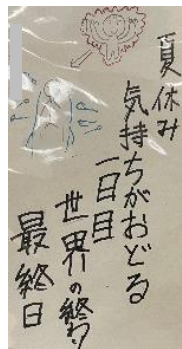 夏休み
気持ちがおどる
一日目
世界の終り
最終日